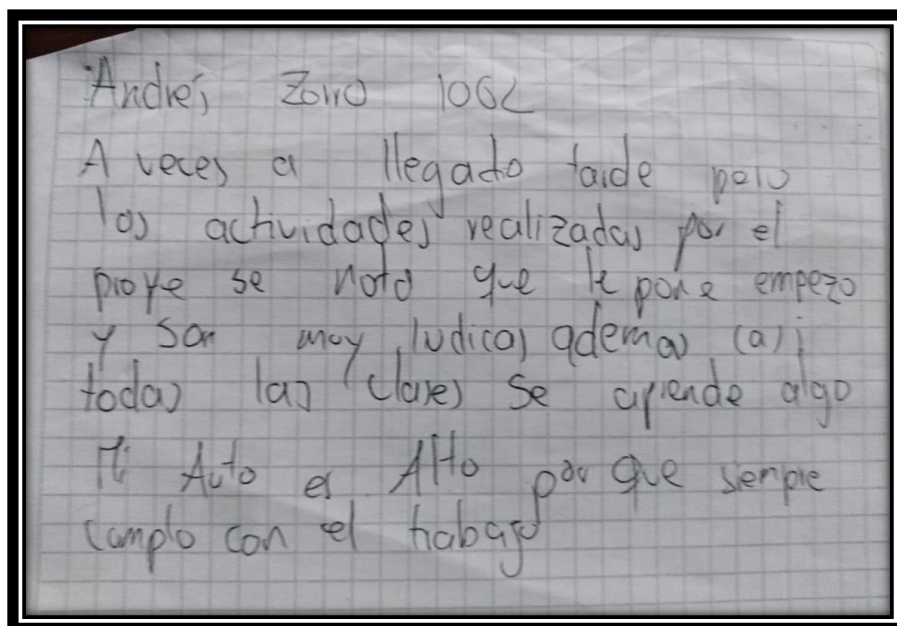 Andrés Zorro 1002
A veces a llegado tarde pero
las actividades realizadas por el
profe se nota que le pone empezo
y son muy ludicas ademas casi
todas las clases se aprende algo
Mi Auto es Alto por que sempre
cumplo con el trabago